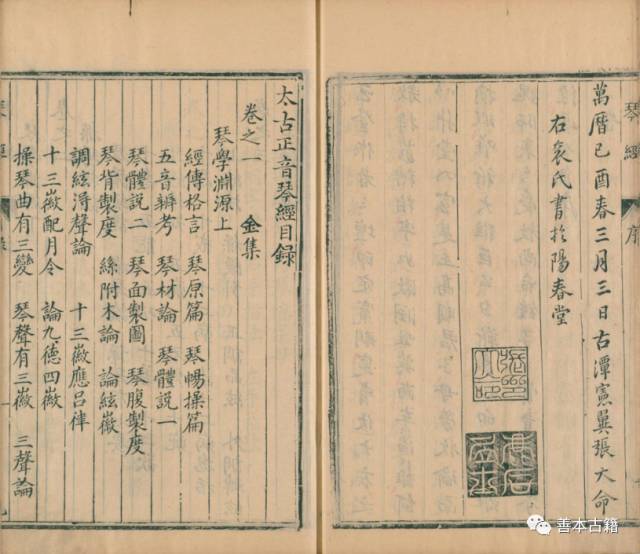 琴經
序
萬曆己酉春三月三日古潭憲巽張大命
右袞氏書於陽春堂
太古正音琴經目錄
卷之一
金集
琴學淵源上
經傳格言 琴原篇 琴暢操篇
五音辨考 琴材論 琴體說一
琴體說二 琴面製圖 琴腹製度
琴背製度 絲附木論 論絃徽
調絃淂聲論 十三徽應呂律
十三徽配月令 論九德四徽
操琴曲有三變 琴聲有三徽 三聲論
善本古籍